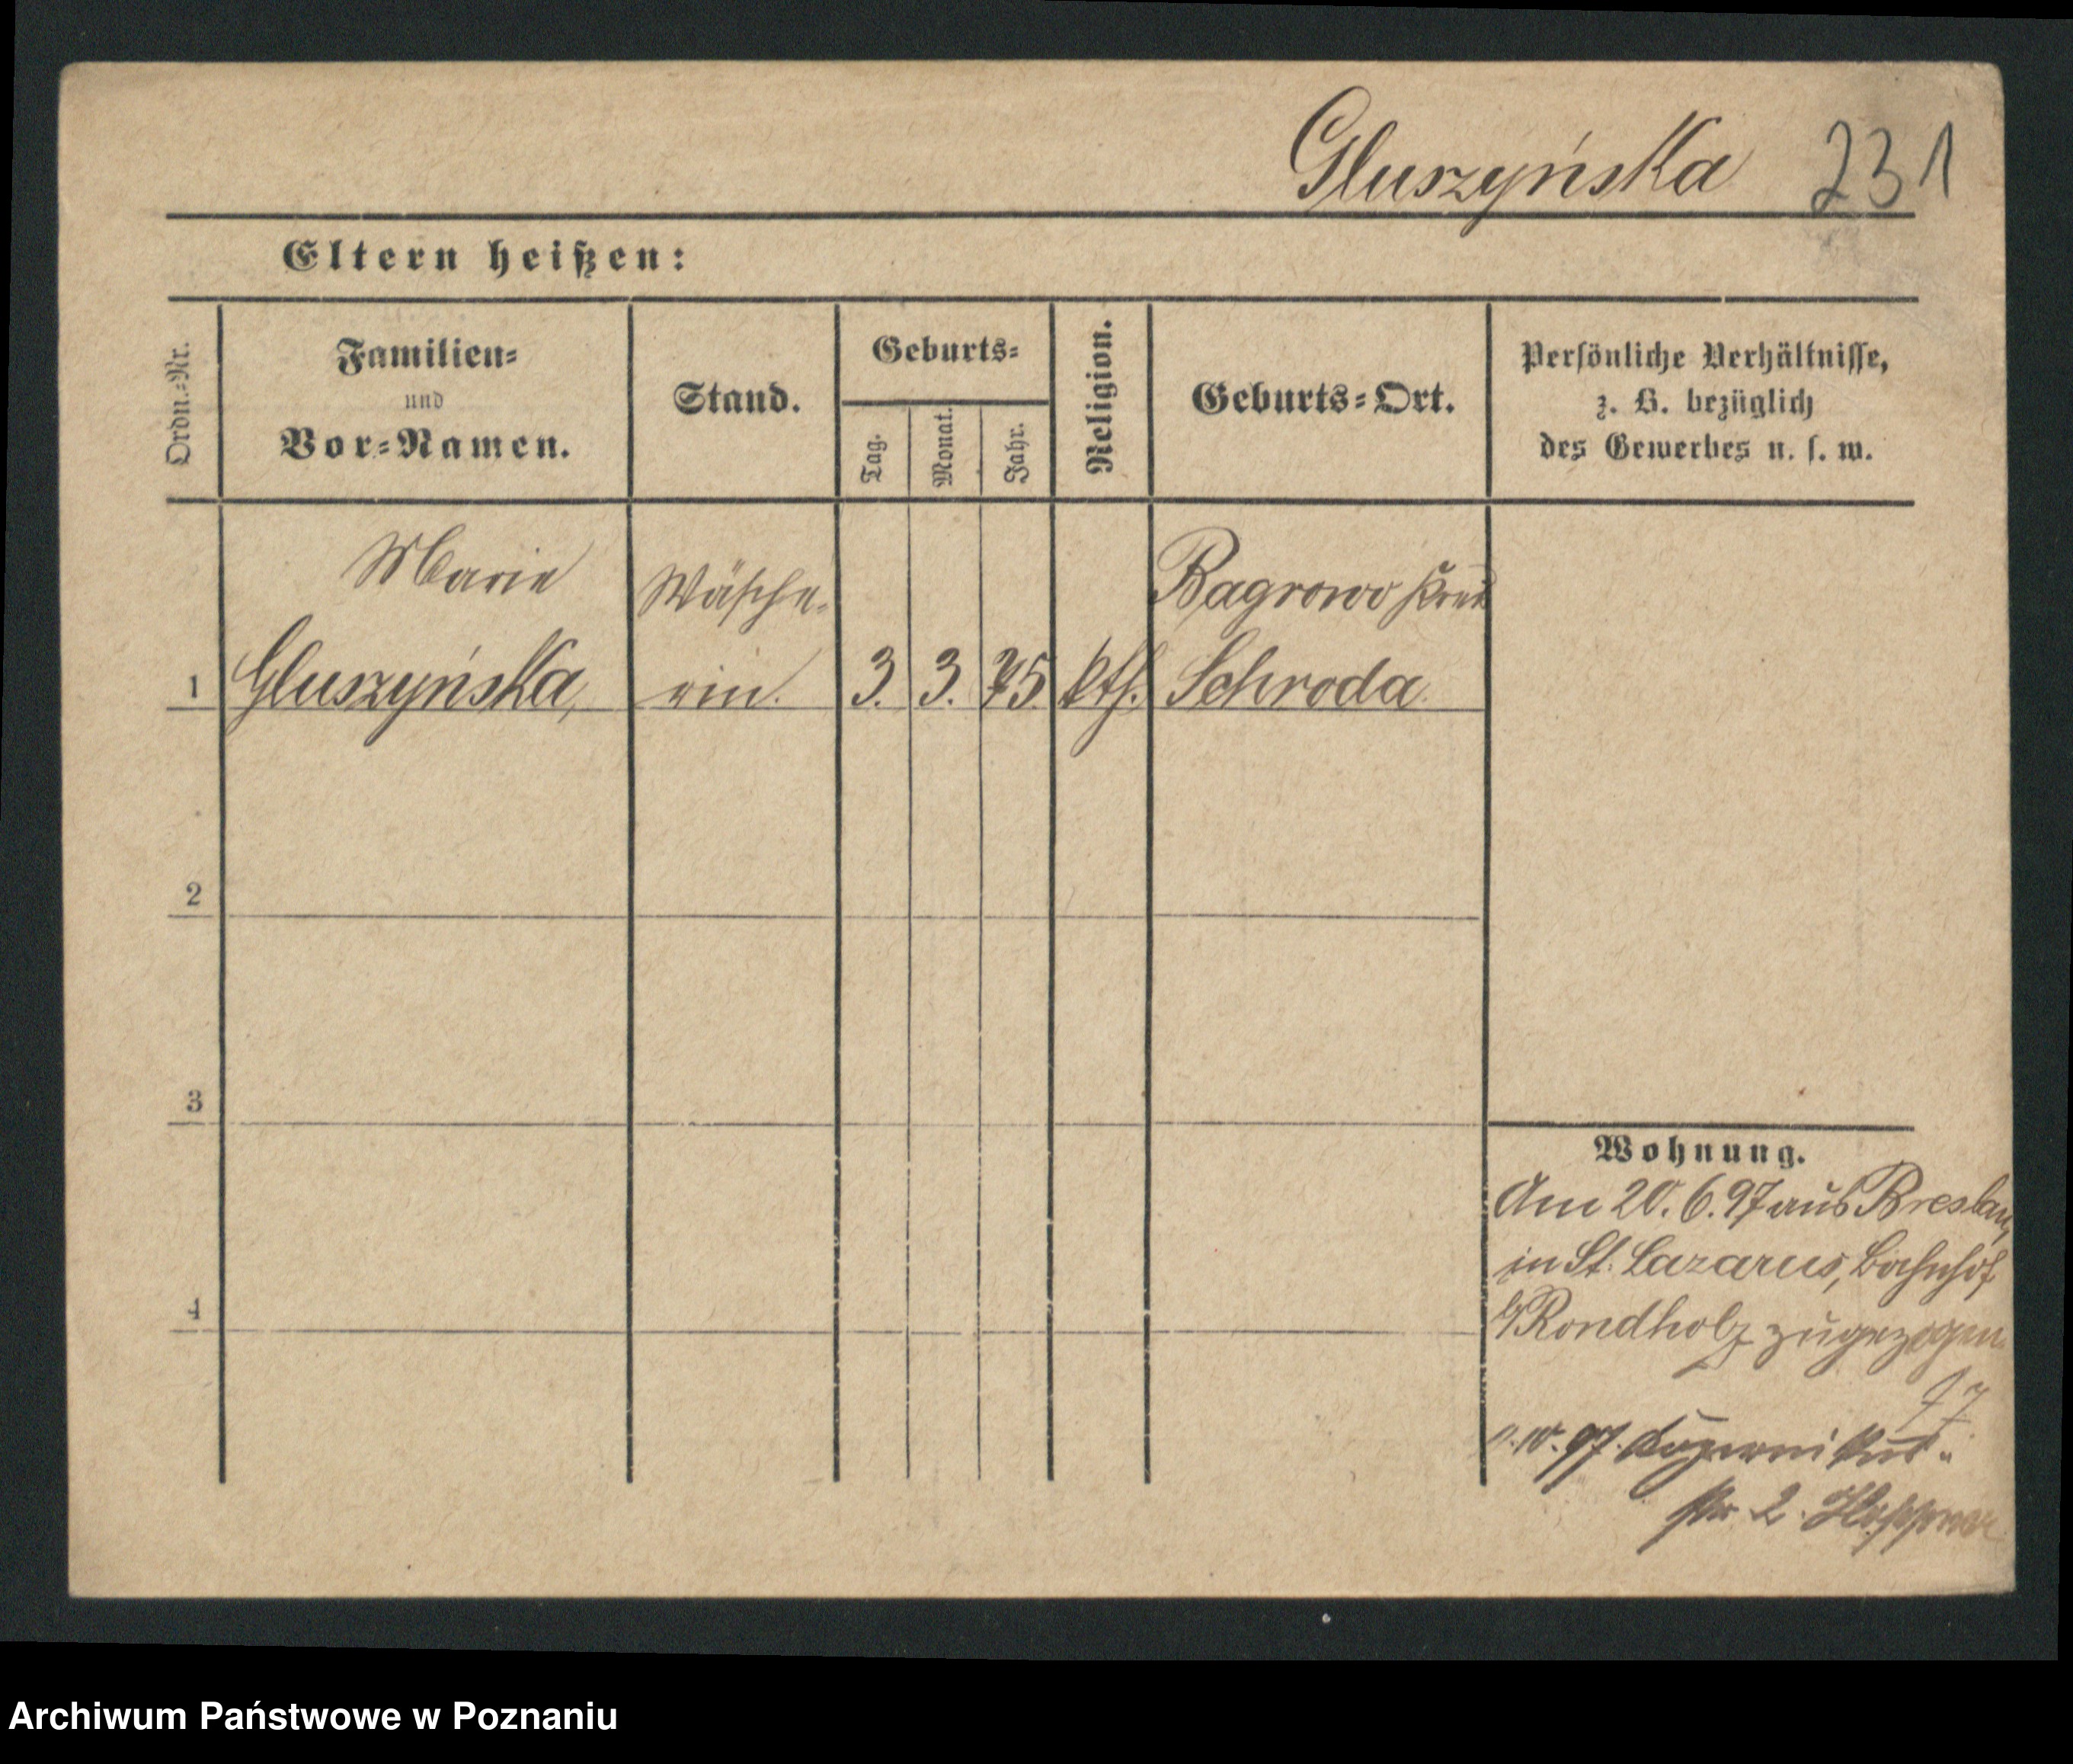 Gluszyńska 231
Eltern heißen:
Ordn.=Nr.
Familien=
und
Vor=Namen.
Stand.
Geburts=
Tag.
Monat.
Jahr.
Religion.
Geburts=Ort.
Persönliche Verhältnisse,
z. B. bezüglich
des Gewerbes u. s. w.
Marie Wäsche- Bagrowo Kreis
1 Gluszyńska, rin. 3. 3. 75 kth. Schroda.
2
3
4
Wohnung.
Am 20. 6. 97 aus Breslau,
in St. Lazarus, Bahnhof
b/ Rondholz zugezogen
10. 97.
2.
Archiwum Państwowe w Poznaniu